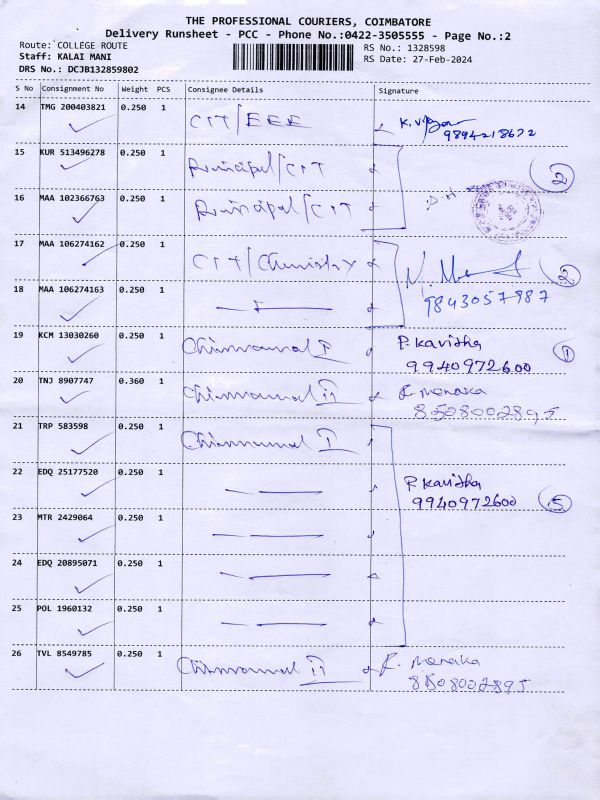 THE PROFESSIONAL COURIERS, COIMBATORE
Delivery Runsheet - PCC - Phone No.:0422-3505555 - Page No.:2
Route: COLLEGE ROUTE
Staff: KALAI MANI
DRS No.: DCJB132859802
RS No.: 1328598
RS Date: 27-Feb-2024
S No Consignment No Weight PCS Consignee Details Signature
14 TMG 200403821 0.250 1 CIT/EEE
9894218672
15 KUR 513496278 0.250 1 Principal/CIT
2
16 MAA 102366763 0.250 1 Principal/CIT
17 MAA 106274162 0.250 1 CIT/Chemistry
2
18 MAA 106274163 0.250 1 9843057987
19 KCM 13030260 0.250 1 Chinnammal I P. Kavitha
9940972600 1
20 TNJ 8907747 0.360 1 Chinnammal II R. Menaka
8508002895
21 TRP 583598 0.250 1 Chinnammal I
22 EDQ 25177520 0.250 1 P. Kavitha
9940972600 5
23 MTR 2429064 0.250 1
24 EDQ 20895071 0.250 1
25 POL 1960132 0.250 1
26 TVL 8549785 0.250 1 Chinnammal II R. Menaka
8508002895